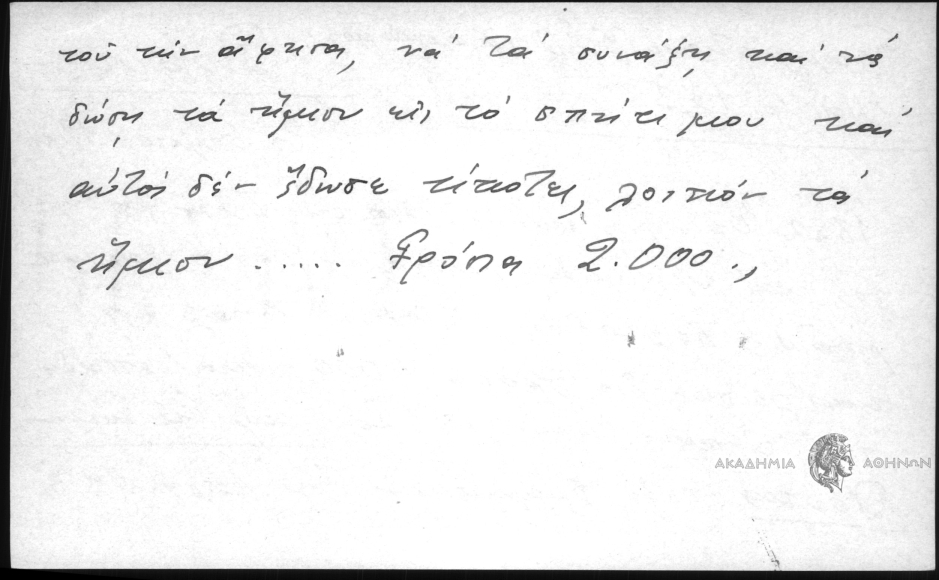 τοῦ τὴν ἄφησα, νά τά συνάξῃ καί νά
δώσῃ τά ἤμισυ εἰς τό σπήτι μου καί
αὐτός δέν ἔδωσε τίποτες, λοιπόν τά
ἤμισυ ..... Γρόσια 2.000.,
ΑΚΑΔΗΜΙΑ ΑΘΗΝΩΝ